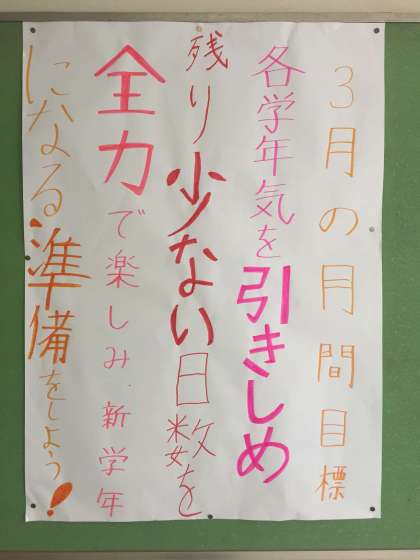 3月の月間目標
各学年気を引きしめ
残り少ない日数を
全力で楽しみ新学年
になる準備をしよう!